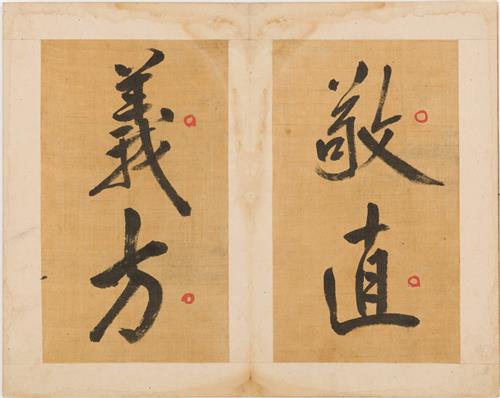 敬直
義方